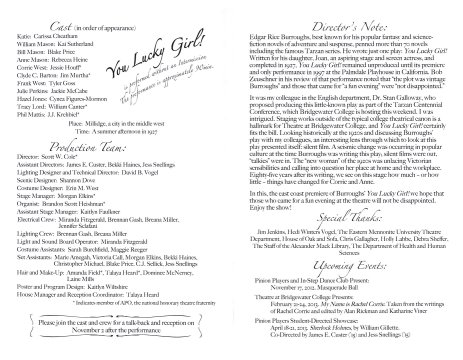 Cast (in order of appearance)
Katie: Carissa Cheatham
William Mason: Kat Sutherland
Bill Mason: Blake Price
Anne Mason: Rebecca Heine
Corrie West: Jessie Houff*
Clyde C. Barton: Jim Murtha*
Frank West: Tyler Goss
Julie Perkins: Jackie McCabe
Hazel Jones: Cynea Figures-Morrison
Tracy Lord: William Caster*
Phil Mattis: J.J. Krehbiel*
Place: Millidge, a city in the middle west
Time: A summer afternoon in 1927
You Lucky Girl!
is performed without an Intermission
The performance is approximately Minutes.
Production Team:
Director: Scott W. Cole*
Assistant Directors: James E. Custer, Bekki Haines, Jess Snellings
Lighting Designer and Technical Director: David B. Vogel
Scenic Designer: Shannon Dove
Costume Designer: Erin M. West
Stage Manager: Morgan Elkins*
Organist: Brandon Scott Heishman*
Assistant Stage Manager: Kaitlyn Faulkner
Electrical Crew: Miranda Fitzgerald, Brennan Gash, Breana Miller,
Jennifer Sclafani
Lighting Crew: Brennan Gash, Breana Miller
Light and Sound Board Operator: Miranda Fitzgerald
Costume Assistants: Sarah Borchfield, Maggie Reeger
Set Assistants: Marie Amegah, Victoria Call, Morgan Elkins, Bekki Haines,
Christopher Michael, Blake Price, C.J. Sellick, Jess Snellings
Hair and Make-Up: Amanda Field*, Talaya Heard*, Dominice McNerney,
Laine Mills
Poster and Program Design: Kaitlyn Wiltshire
House Manager and Reception Coordinator: Talaya Heard
* Indicates member of APO, the national honorary theatre fraternity
Please join the cast and crew for a talk-back and reception on
November 2 after the performance
Director's Note:
Edgar Rice Burroughs, best known for his popular fantasy and science-
fiction novels of adventure and suspense, penned more than 70 novels
including the famous Tarzan series. He wrote just one play: You Lucky Girl!
Written for his daughter, Joan, an aspiring stage and screen actress, and
completed in 1927, You Lucky Girl! remained unproduced until its premiere
and only performance in 1997 at the Palmdale Playhouse in California. Bob
Zeuschner in his review of that performance noted that "the plot was vintage
Burroughs" and those that came for "a fun evening" were "not disappointed."
It was my colleague in the English department, Dr. Stan Galloway, who
proposed producing this little-known play as part of the Tarzan Centennial
Conference, which Bridgewater College is hosting this weekend. I was
intrigued. Staging works outside of the typical college theatrical canon is a
hallmark for Theatre at Bridgewater College, and You Lucky Girl! certainly
fits the bill. Looking historically at the 1920s and discussing Burroughs'
play with my colleagues, an interesting lens through which to look at this
play presented itself: silent film. A seismic change was occurring in popular
culture at the time Burroughs was writing this play; silent films were out,
'talkies' were in. The 'new woman' of the 1920s was unlacing Victorian
sensibilities and calling into question her place at home and the workplace.
Eighty-five years after its writing, we see on this stage how much – or how
little – things have changed for Corrie and Anne.
In this, the east coast premiere of Burroughs' You Lucky Girl! we hope that
those who came for a fun evening at the theatre will not be disappointed.
Enjoy the show!
Special Thanks:
Jim Jenkins, Heidi Winters Vogel, The Eastern Mennonite University Theatre
Department, House of Oak and Sofa, Chris Gallaghy, Holly Labbe, Debra Sheffer,
The Staff of the Alexander Mack Library, The Department of Health and Human
Sciences
Upcoming Events:
Pinion Players and In-Step Dance Club Present:
November 17, 2012, Masquerade Ball
Theatre at Bridgewater College Presents:
February 21-24, 2013, My Name is Rachel Corrie: Taken from the writings
of Rachel Corrie and edited by Alan Rickman and Katharine Viner
Pinion Players Student-Directed Showcase:
April 18-21, 2013, Sherlock Holmes, by William Gillette.
Co-Directed by James E. Custer ('15) and Jess Snellings ('15)